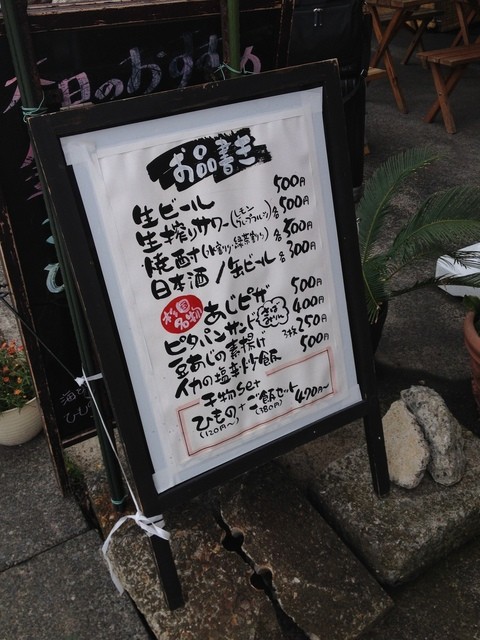 本日のおすすめ
お品書き
生ビール 500円
生搾りサワー(レモン グレープフルーツ) 各500円
焼酎(水割り・緑茶割り) 各500円
日本酒/缶ビール 各300円
あじピザ 500円
ピタパンサンド 400円
豆あじの素揚げ 3枚250円
イカの塩辛炒飯 500円
干物set
ひもの+ご飯セット 470円~
(120円~) (350円)